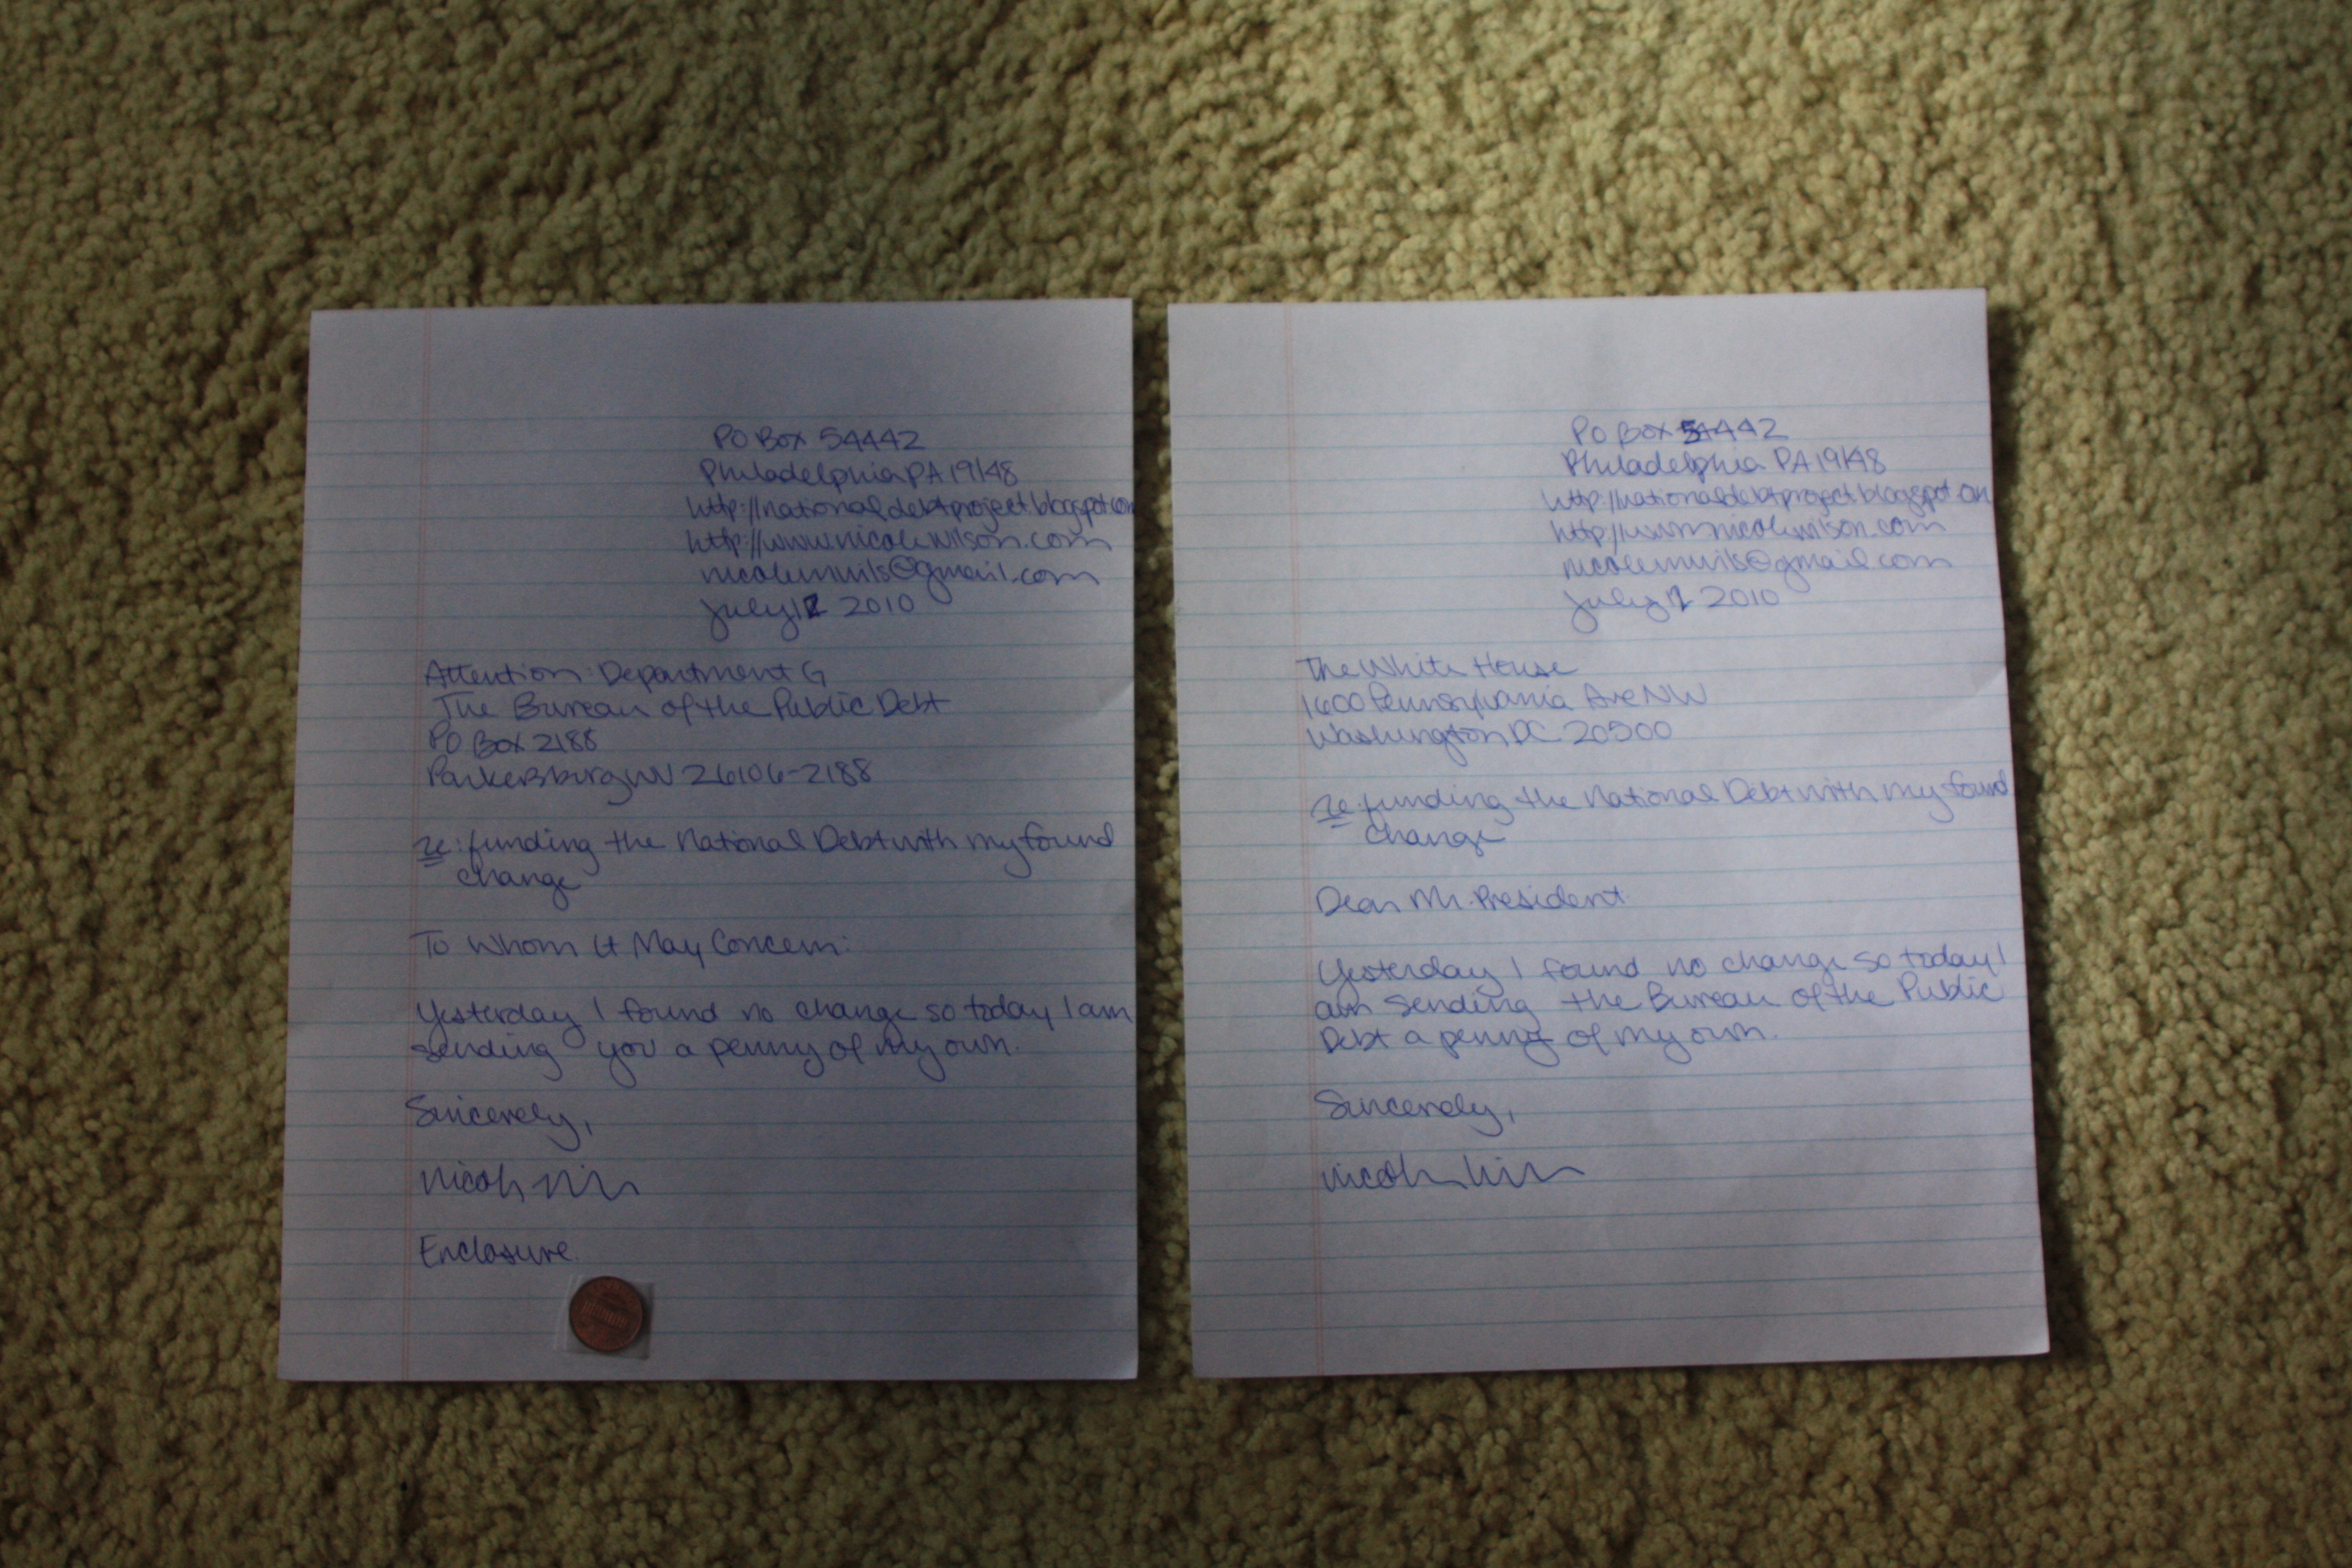 PO Box 54442
Philadelphia PA 19148
http://nationaldebtproject.blogspot.com
http://www.nicolewilson.com
nicolemwils@gmail.com
July 2010
Attention: Department G
The Bureau of the Public Debt
PO Box 2188
Parkersburg WV 26106-2188
re: funding the National Debt with my found
change
To Whom It May Concern:
Yesterday I found no change so today I am
sending you a penny of my own.
Sincerely,
Enclosure
PO Box 54442
Philadelphia PA 19148
http://nationaldebtproject.blogspot.com
http://www.nicolewilson.com
nicolemwils@gmail.com
July 2010
The White House
1600 Pennsylvania Ave NW
Washington DC 20500
re: funding the National Debt with my found
change
Dear Mr. President
Yesterday I found no change so today I
am sending the Bureau of the Public
Debt a penny of my own.
Sincerely,